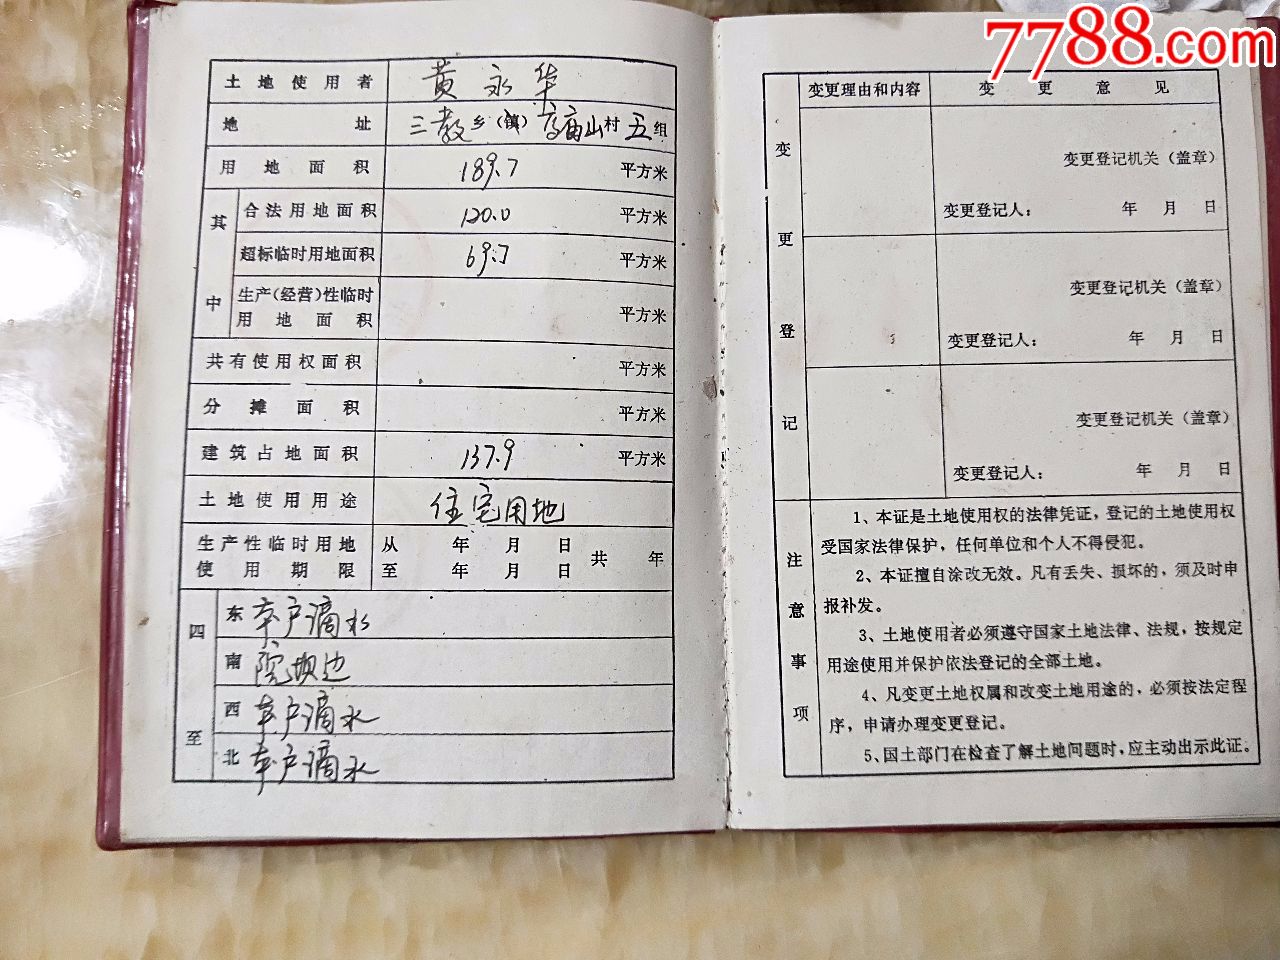 7788.com
土地使用者 黄永华
地址 三教乡(镇)高庙山村五组
用地面积 189.7 平方米
其中
合法用地面积 120.0 平方米
超标临时用地面积 69.7 平方米
生产(经营)性临时
用地面积 平方米
共有使用权面积 平方米
分摊面积 平方米
建筑占地面积 137.9 平方米
土地使用用途 住宅用地
生产性临时用地 从 年 月 日
使用期限 至 年 月 日 共 年
四至
东 本户滴水
南 院坝边
西 本户滴水
北 本户滴水
变更登记
变更理由和内容 变更意见
变更登记机关(盖章)
变更登记人: 年 月 日
变更登记机关(盖章)
变更登记人: 年 月 日
变更登记机关(盖章)
变更登记人: 年 月 日
注意事项
1、本证是土地使用权的法律凭证,登记的土地使用权
受国家法律保护,任何单位和个人不得侵犯。
2、本证擅自涂改无效。凡有丢失、损坏的,须及时申
报补发。
3、土地使用者必须遵守国家土地法律、法规,按规定
用途使用并保护依法登记的全部土地。
4、凡变更土地权属和改变土地用途的,必须按法定程
序,申请办理变更登记。
5、国土部门在检查了解土地问题时,应主动出示此证。